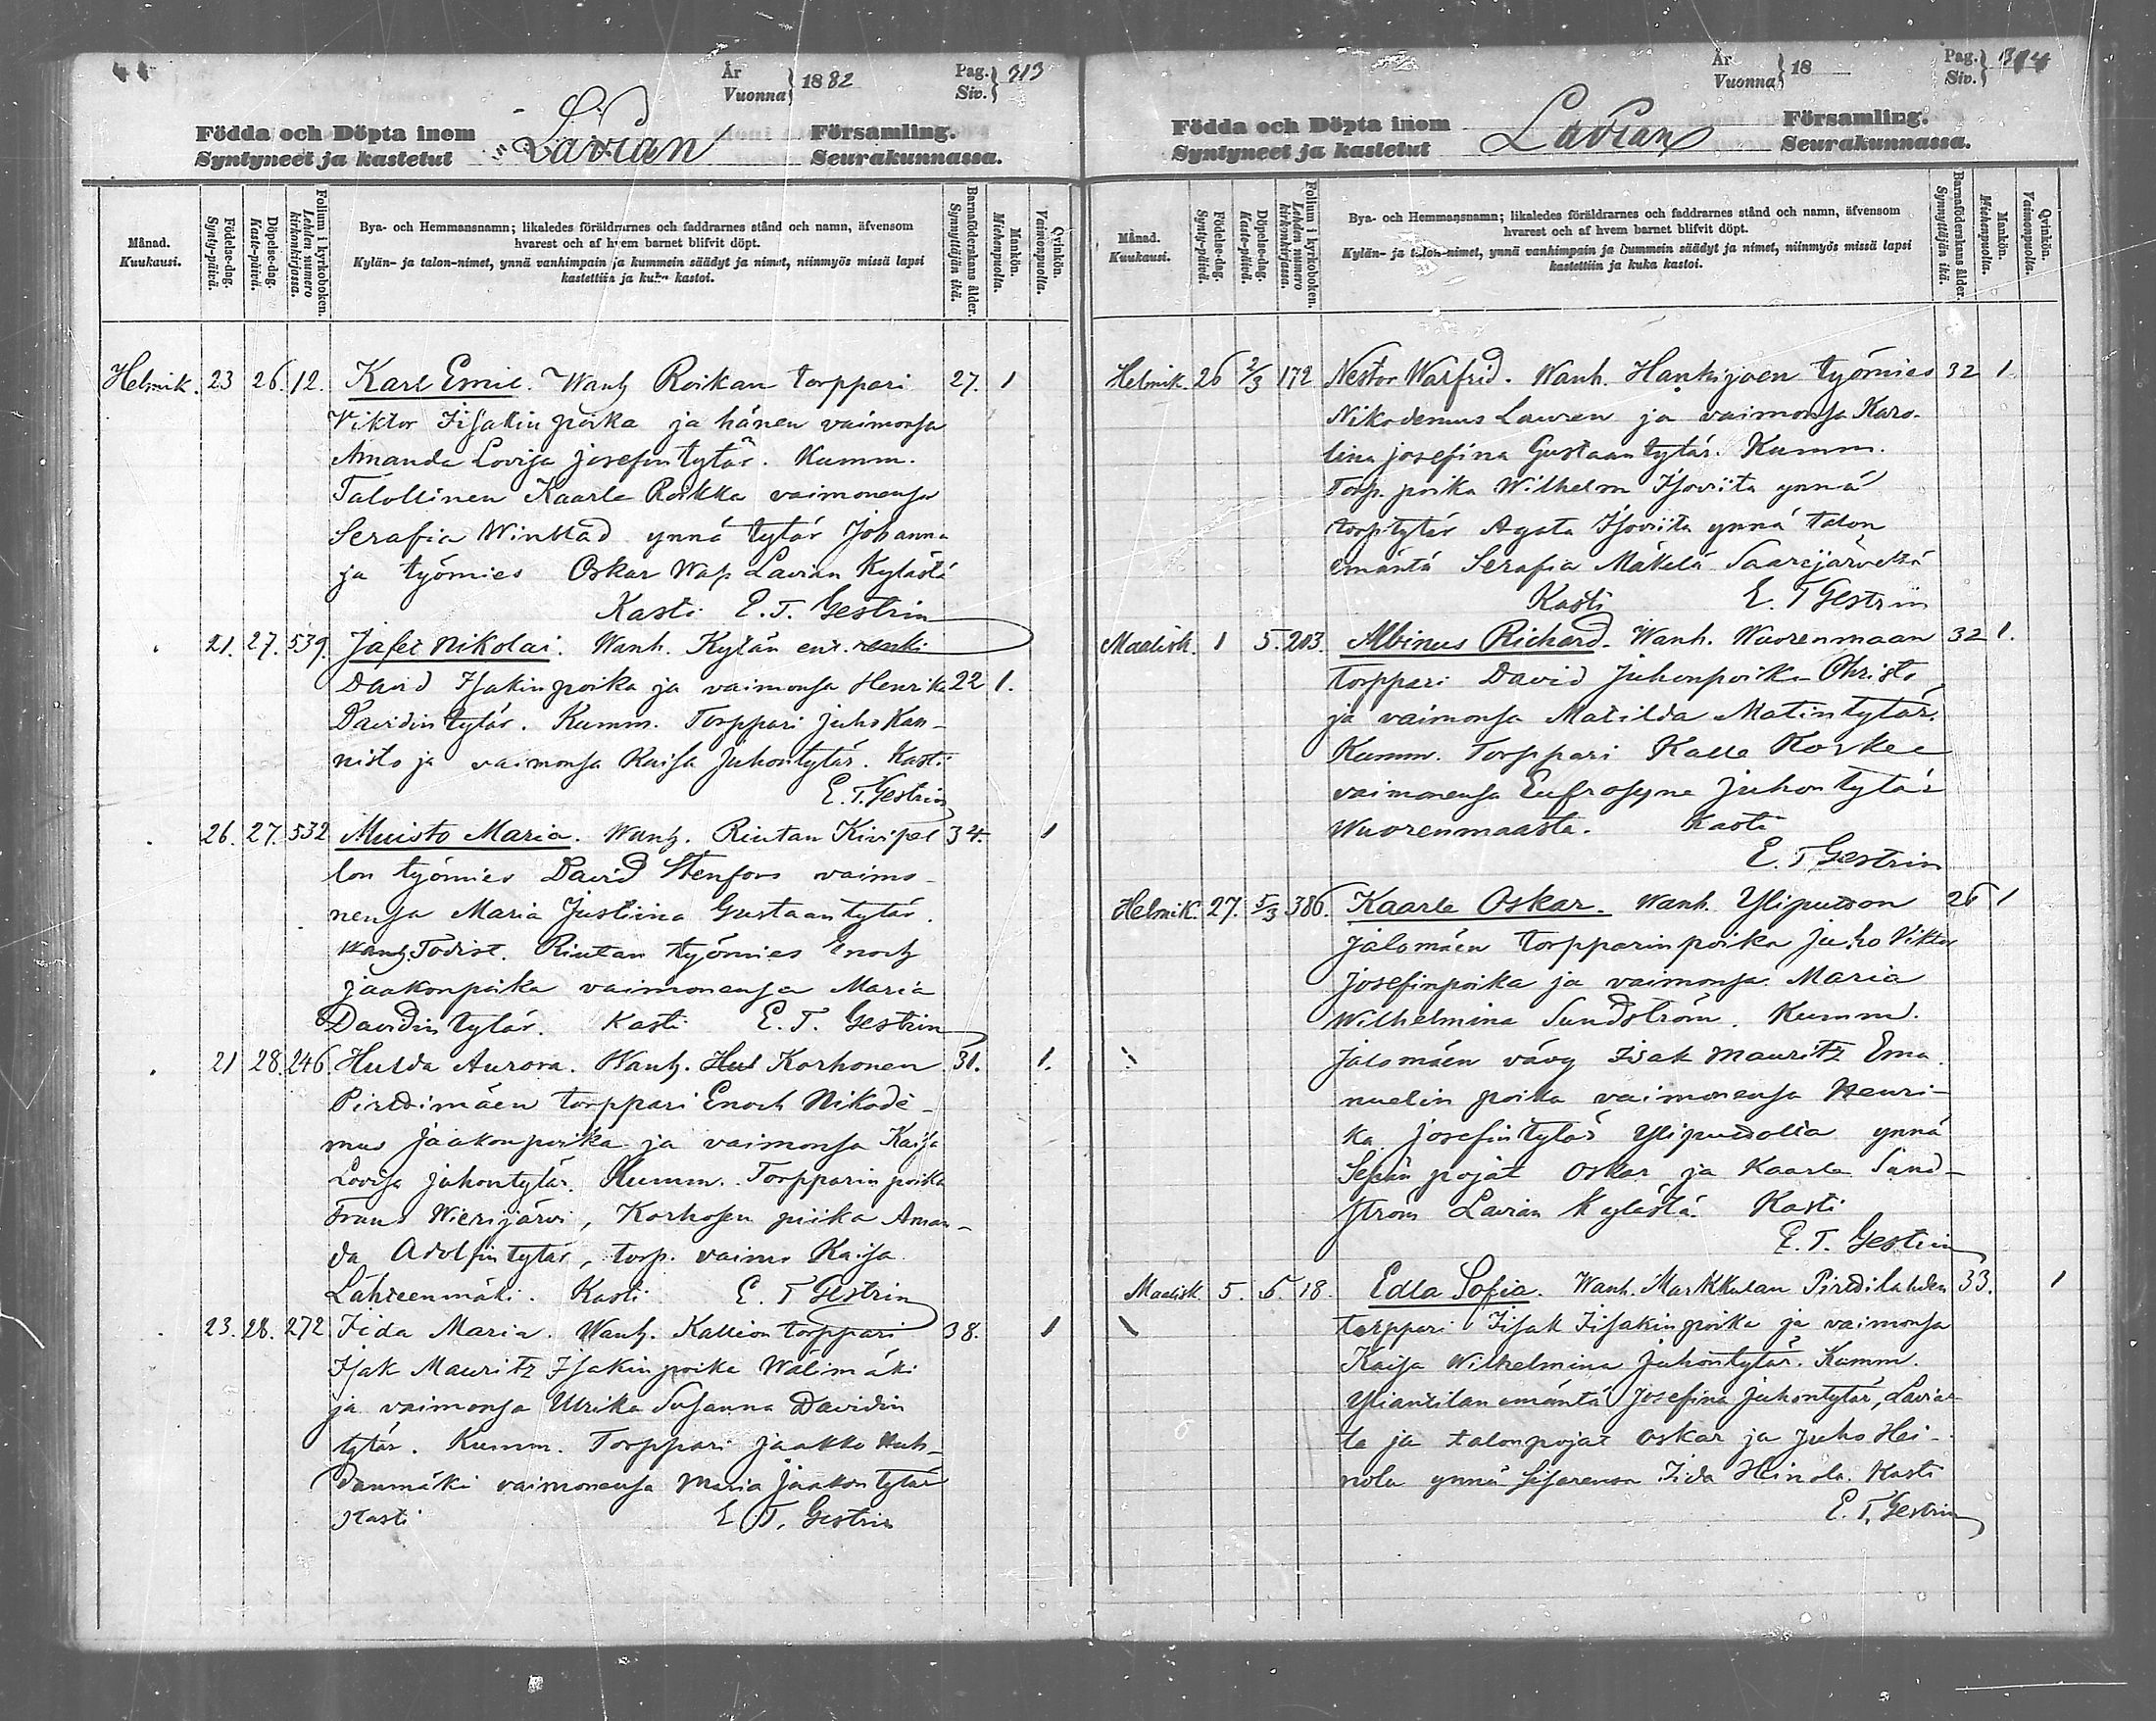 År
Vuonna } 1882
Pag.
Siv. } 313
Födda och Döpta inom
Syntyneet ja kastetut
Lavian
Församling.
Seurakunnassa.
Månad.
Kuukausi.
Födelse-dag.
Synty-päivä.
Döpelse-dag.
Kaste-päivä.
Folium i kyrkoboken.
Lehden numero kirkonkirjassa.
Bya- och Hemmansnamn; likaledes föräldrarnes och faddrarnes stånd och namn, äfvensom
hvarest och af hvem barnet blifvit döpt.
Kylän- ja talon-nimet, ynnä vanhimpain ja kummein säädyt ja nimet, niinmyös missä lapsi
kastettiin ja kuka kastoi.
Barnaföderskans ålder.
Synnyttäjän ikä.
Mankön.
Miehenpuolta.
Qvinkön.
Vaimonpuolta.
Helmik. 23 26. 12. Karl Emil. Wanh Roikan torppari 27. 1
Viktor Iisakin poika ja hänen vaimonsa
Amanda Lovisa Josefintytär. Kumm.
Talollinen Kaarle Roikka vaimonensa
Serafia Winblad ynnä tytär Johanna
ja työmies Oskar Wass Lavian Kylästä
Kasti E. T. Gestrin
21. 27. 539. Jafet Nikolai. Wanh. Kylän ent. renki
David Isakinpoika ja vaimonsa Henrika 22 1.
Davidintytär. Kumm. Torppari Juho Kan-
nisto ja vaimonsa Kaisa Juhontytär. Kasti
E. T. Gestrin
26. 27. 532 Muisto Maria. Wanh. Riutan Kivipel 34. 1
lon työmies David Stenfors vaimo-
nensa Maria Justiina Gustaantytär.
Todist. Riutan työmies Enoch
Jaakonpoika vaimonensa Maria
Davidintytär. Kasti E. T. Gestrin
21 28. 246 Hulda Aurora. Wanh. Hul Korhonen 31. 1.
Pirttimäen torppari Enoch Nikode-
mus Jaakonpoika ja vaimonsa Kaisa
Lovisa Juhontytär. Kumm. Torpparin poika
Frans Wierijärvi, Korhosen piika Aman-
da Adolfintytär, torp. vaimo Kaisa
Lähteenmäki. Kasti E. T Gestrin
23. 28. 272 Iida Maria. Wanh. Kallion torppari 38. 1
Isak Mauritz Isakinpoika Wälimäki
ja vaimonsa Ulrika Susanna Davidin
tytär. Kumm. Torppari Jaakko Huh-
danmäki vaimonensa Maria Jaakontytär
Kasti E. T. Gestrin
År
Vuonna } 18
Pag.
Siv. } 314
Födda och Döpta inom
Syntyneet ja kastetut
Lavian
Församling.
Seurakunnassa.
Månad.
Kuukausi.
Födelse-dag.
Synty-päivä.
Döpelse-dag.
Kaste-päivä.
Folium i kyrkoboken.
Lehden numero kirkonkirjassa.
Bya- och Hemmansnamn; likaledes föräldrarnes och faddrarnes stånd och namn, äfvensom
hvarest och af hvem barnet blifvit döpt.
Kylän- ja talon-nimet, ynnä vanhimpain ja kummein säädyt ja nimet, niinmyös missä lapsi
kastettiin ja kuka kastoi.
Barnaföderskans ålder.
Synnyttäjän ikä.
Mankön.
Miehenpuolta.
Qvinkön.
Vaimonpuolta.
Helmik. 26 2/3 172 Nestor Warfrid. Wanh. Hanhijoen työmies 32 1.
Nikodemus Lauren ja vaimonsa Karo-
lina Josefina Gustaantytär. Kumm.
Torp. poika Wilhelm Isoviita ynnä
torp.tytär Agata Isoviita ynnä talon
emäntä Serafia Mäkelä Saarijärveltä
Kasti E. T Gestrin
Maalisk. 1 5. 203. Albinus Richard. Wanh. Wuorenmaan 32 1.
torppari David Juhonpoika Ohristo
ja vaimonsa Matilda Matintytär.
Kumm. Torppari Kalle Koskee
vaimonensa Eufrosyne Juhontytär
Wuorenmaasta. Kasti
E. T Gestrin
Helmik. 27. 5/3 386. Kaarle Oskar. Wanh. Ylipuson 26 1
Jalomäen torpparinpoika Juho Viktor
Josefinpoika ja vaimonsa Maria
Wilhelmina Sundström. Kumm.
Jalomäen vävy Isak Mauritz Ema
nuelin poika vaimonensa Henri-
ka Josefintytär Ylipusolta ynnä
Sepän pojat Oskar ja Kaarle Sund-
ström Lavian Kylästä. Kasti
E. T. Gestrin
Maalisk. 5. 5. 18. Edla Sofia. Wanh. Markkulan Pirttilahden 33. 1
torppari Iisak Iisakinpoika ja vaimonsa
Kaisa Wilhelmina Juhontytär. Kumm.
Yliantilan emäntä Josefina Juhontytär, Lavias-
ta ja talonpojat Oskar ja Juho Hei-
nola ynnä sisarensa Iida Heinola. Kasti
E. T. Gestrin